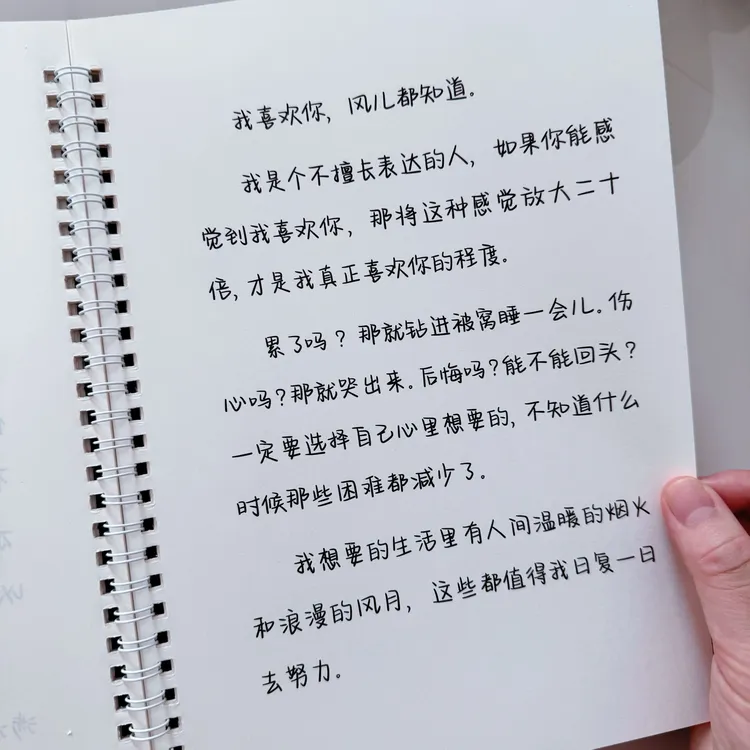 我喜欢你，风儿都知道。
我是个不擅长表达的人，如果你能感
觉到我喜欢你，那将这种感觉放大二十
倍，才是我真正喜欢你的程度。
累了吗？那就钻进被窝睡一会儿。伤
心吗？那就哭出来。后悔吗？能不能回头？
一定要选择自己心里想要的，不知道什么
时候那些困难都减少了。
我想要的生活里有人间温暖的烟火
和浪漫的风月，这些都值得我日复一日
去努力。